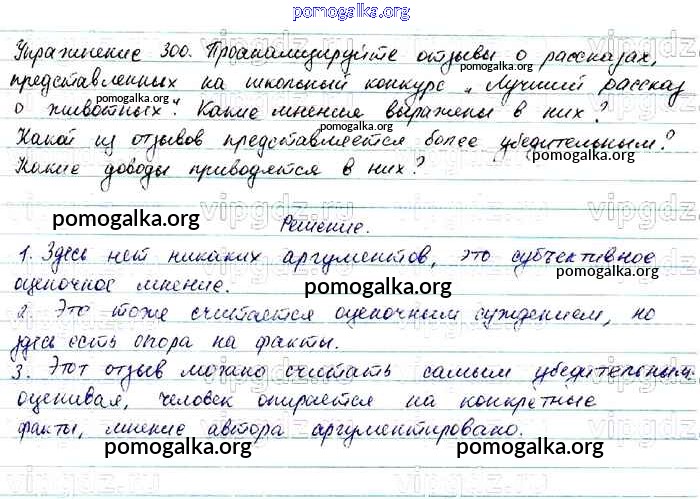 pomogalka.org
Упражнение 300. Проанализируйте отзывы о рассказах,
представленных на школьный конкурс „Лучший рассказ
о животных". Какие мнения выражены в них?
Какой из отзывов представляется более убедительным?
Какие доводы приводятся в них?
Решение.
1. Здесь нет никаких аргументов, это субъективное
оценочное мнение.
2. Это тоже считается оценочным суждением, но
здесь есть опора на факты.
3. Этот отзыв можно считать самым убедительным.
оценивая, человек опирается на конкретные
факты, мнение автора аргументировано.
pomogalka.org pomogalka.org